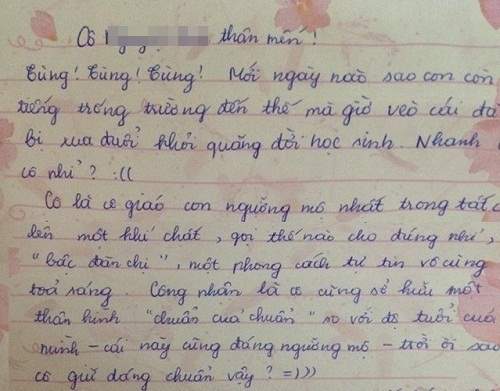 Cô thân mến!
Tùng! Tùng! Tùng! Mới ngày nào sao con còn
tiếng trống trường đến thế mà giờ vèo cái đã
bị xua đuổi khỏi quãng đời học sinh. Nhanh
cô nhỉ? :((
Cô là cô giáo con ngưỡng mộ nhất trong tất c
lên một khí chất, gọi thế nào cho đúng nhỉ,
"bậc đàn chị", một phong cách tự tin vô cùng
toả sáng. Công nhận là cô cũng sở hữu một
thân hình "chuẩn của chuẩn" so với độ tuổi của
mình - cái này cũng đáng ngưỡng mộ - trời ơi sao
cô giữ dáng chuẩn vậy? =)))